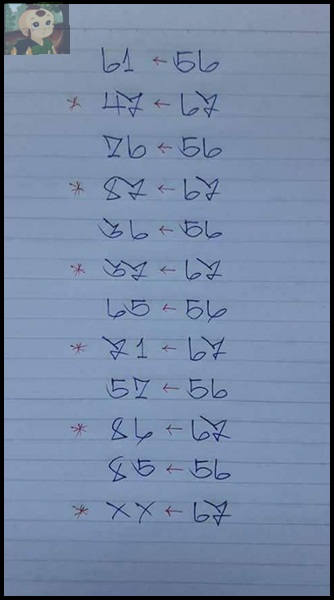 61 ← 56
* 47 ← 67
76 ← 56
* 87 ← 67
36 ← 56
* 37 ← 67
65 ← 56
* 71 ← 67
57 ← 56
* 86 ← 67
85 ← 56
* XX ← 67